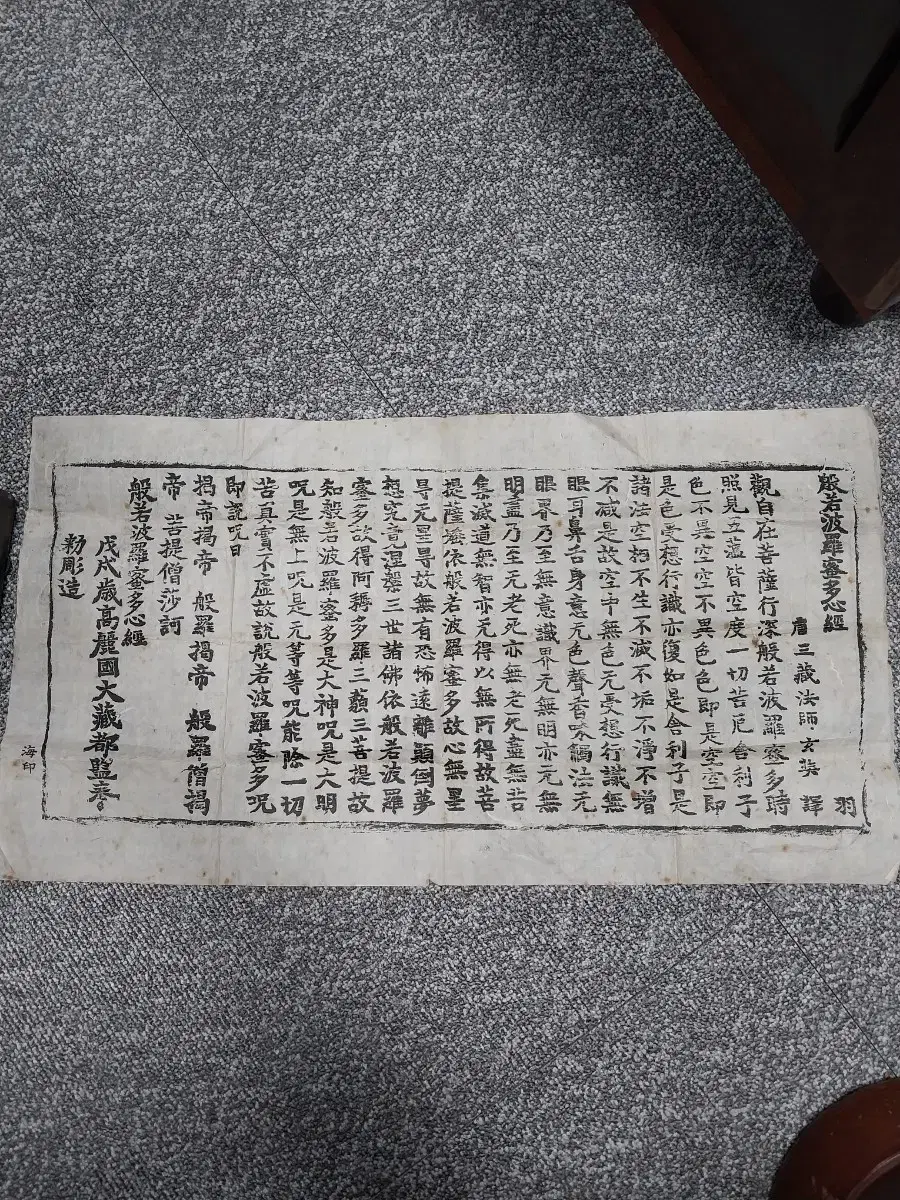 般若波羅蜜多心經 羽
唐三藏法師玄奘 譯
觀自在菩薩行深般若波羅蜜多時
照見五蘊皆空度一切苦厄舍利子
色不異空空不異色色即是空空即
是色受想行識亦復如是舍利子是
諸法空相不生不滅不垢不淨不增
不減是故空中無色无受想行識無
眼耳鼻舌身意无色聲香味觸法无
眼界乃至無意識界无無明亦无無
明盡乃至无老死亦無老死盡無苦
集滅道無智亦无得以無所得故菩
提薩埵依般若波羅蜜多故心無罣
㝵无罣㝵故無有恐怖遠離顚倒夢
想究竟涅槃三世諸佛依般若波羅
蜜多故得阿耨多羅三藐三菩提故
知般若波羅蜜多是大神呪是大明
呪是無上呪是无等等呪能除一切
苦真實不虛故說般若波羅蜜多呪
即說呪曰
揭帝揭帝 般羅揭帝 般羅僧揭
帝 菩提僧莎訶
般若波羅蜜多心經
戊戌歲高麗國大藏都監奉
勅彫造
海印